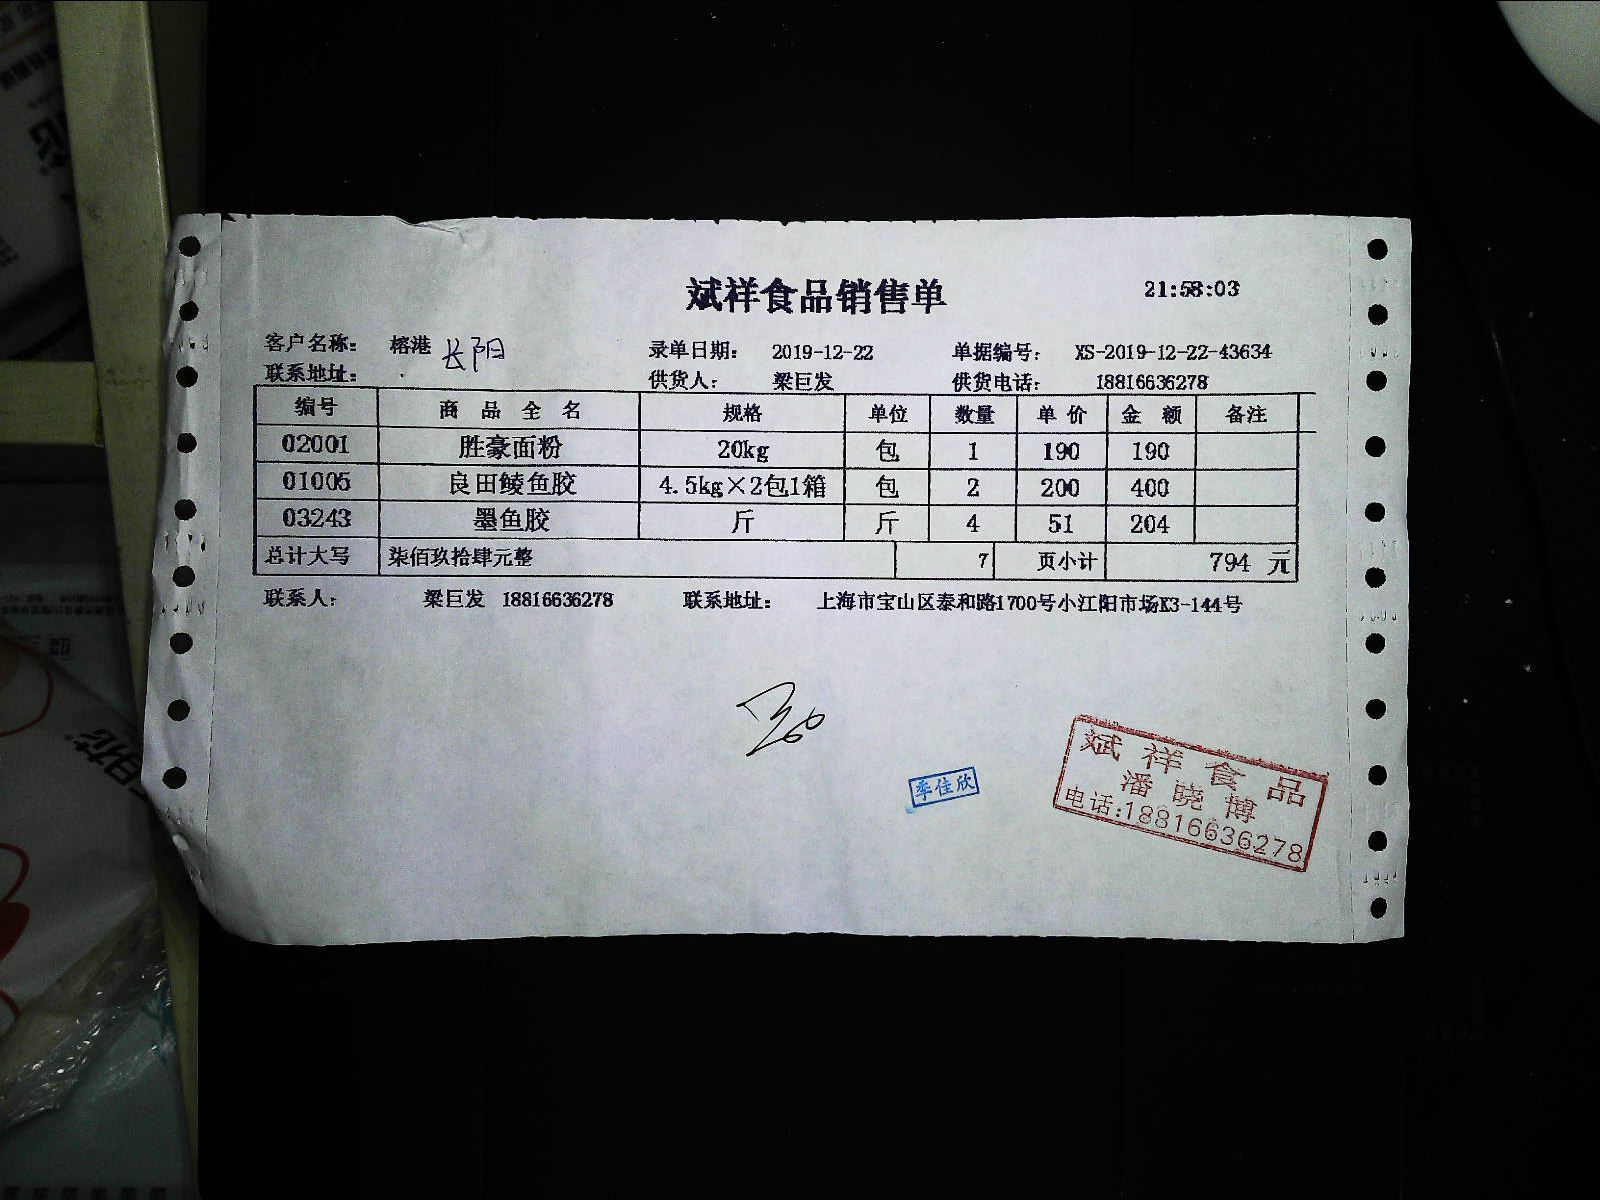 斌祥食品销售单 21:58:03
客户名称： 榕港 长阳 录单日期： 2019-12-22 单据编号： XS-2019-12-22-43634
联系地址： 供货人： 梁巨发 供货电话： 18816636278
编号 商品全名 规格 单位 数量 单价 金额 备注
02001 胜豪面粉 20kg 包 1 190 190
01005 良田鲮鱼胶 4.5kg×2包1箱 包 2 200 400
03243 墨鱼胶 斤 斤 4 51 204
总计大写 柒佰玖拾肆元整 7 页小计 794 元
联系人： 梁巨发 18816636278 联系地址： 上海市宝山区泰和路1700号小江阳市场K3-144号
季佳欣
斌祥食品
潘晓博
电话:18816636278